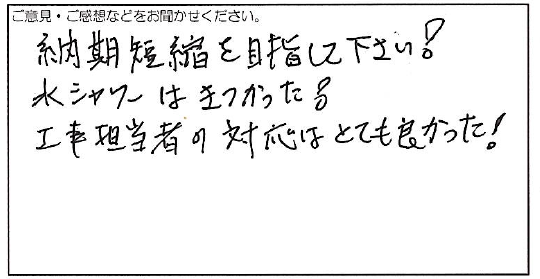 ご意見・ご感想などをお聞かせください。
納期短縮を目指して下さい!
水シャワーはきつかった!
工事担当者の対応はとても良かった!